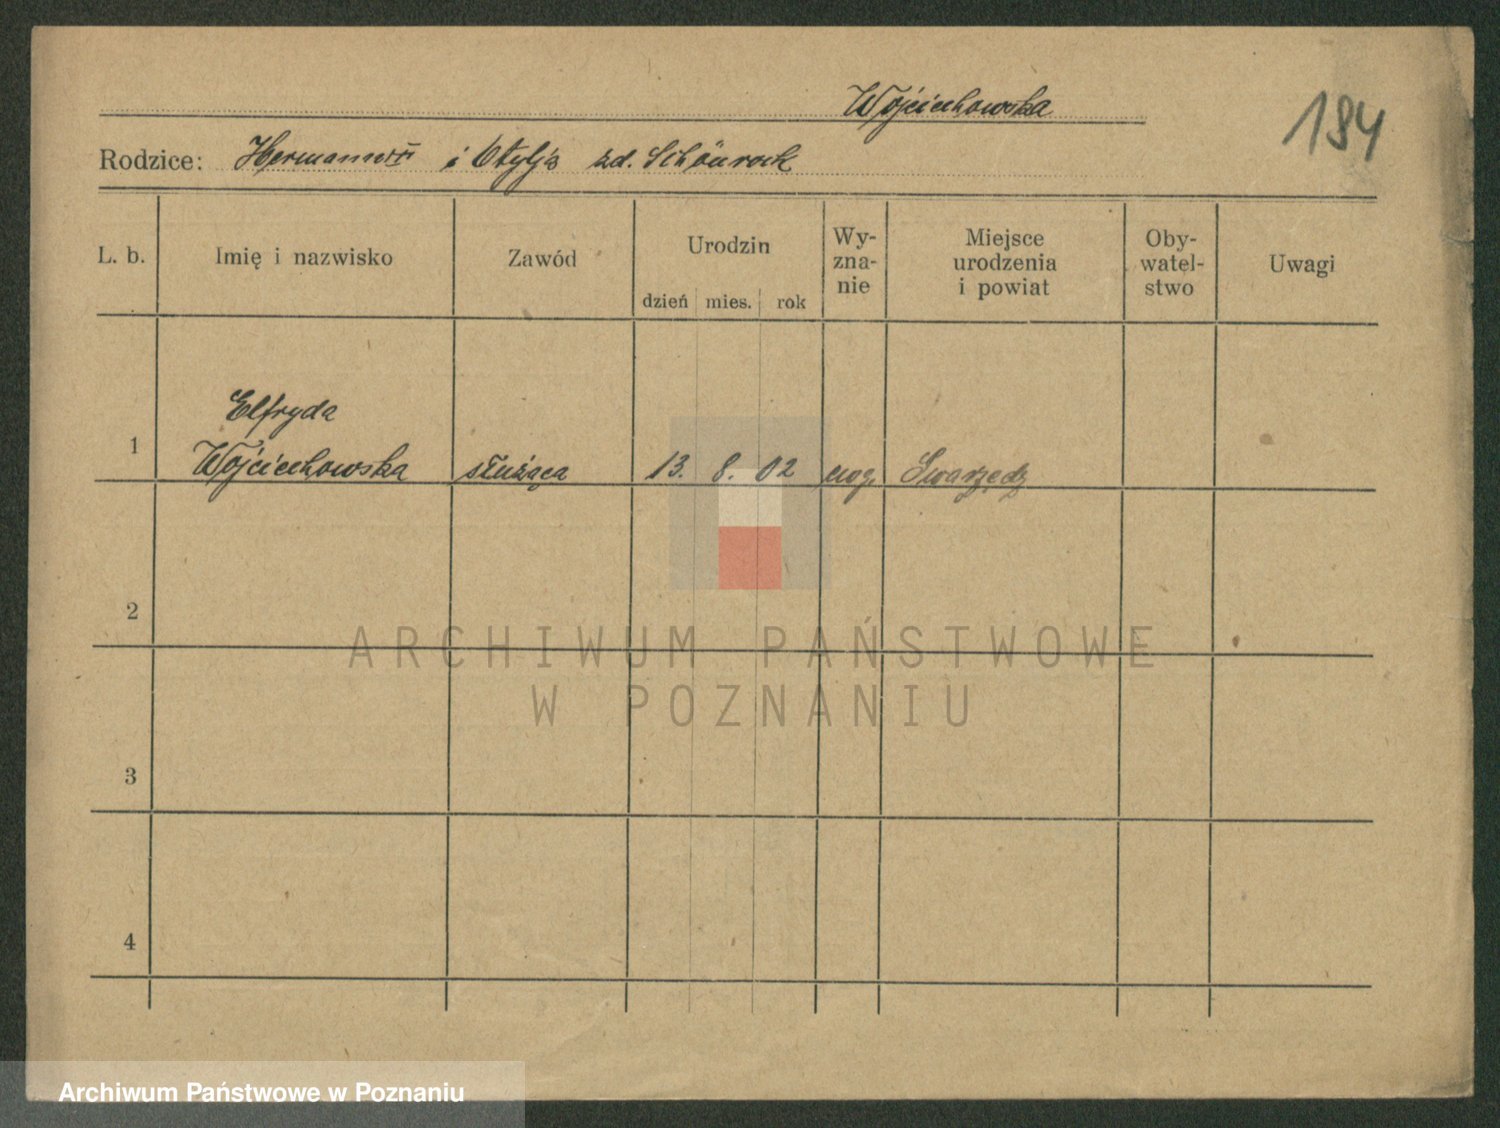 Wojciechowska
184
Rodzice: Hermann i Otylja zd. Schönrock
L. b.
Imię i nazwisko
Zawód
Urodzin
dzień
mies.
rok
Wy-
zna-
nie
Miejsce
urodzenia
i powiat
Oby-
watel-
stwo
Uwagi
1
Elfryda
Wojciechowska
służąca
13.
8.
02
Swarzędz
2
3
4
ARCHIWUM PAŃSTWOWE
W POZNANIU
Archiwum Państwowe w Poznaniu